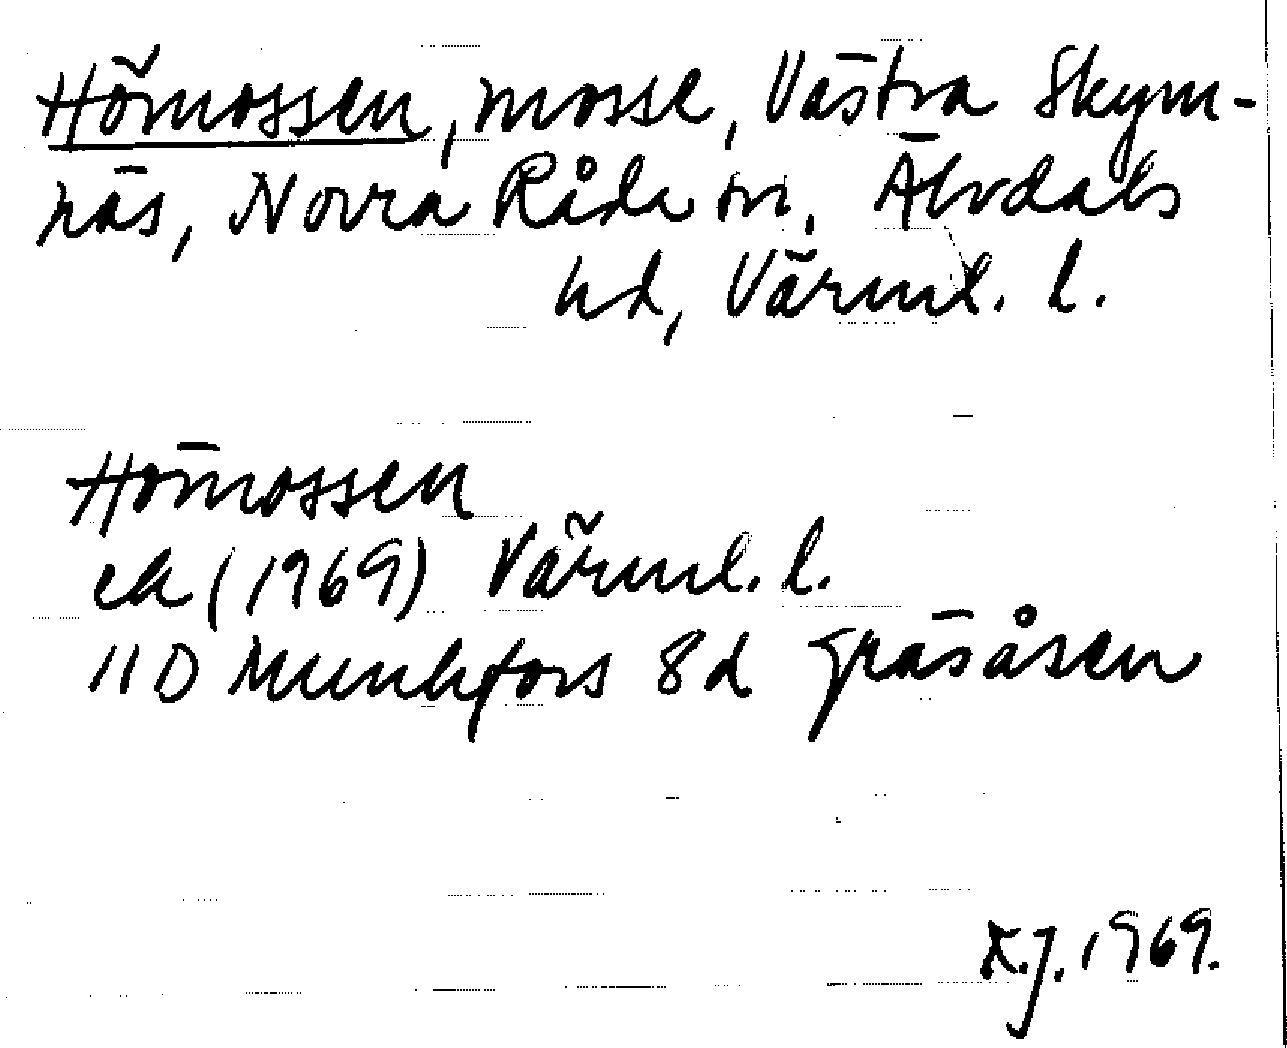 Hömossen, mosse, Västra Skym-
näs, Norra Råda sn, Älvdals
hd, Värml. l.
Hömossen
ek (1969) Värml. l.
11D Munkfors 8d Gräsåsen
K.J. 1969.